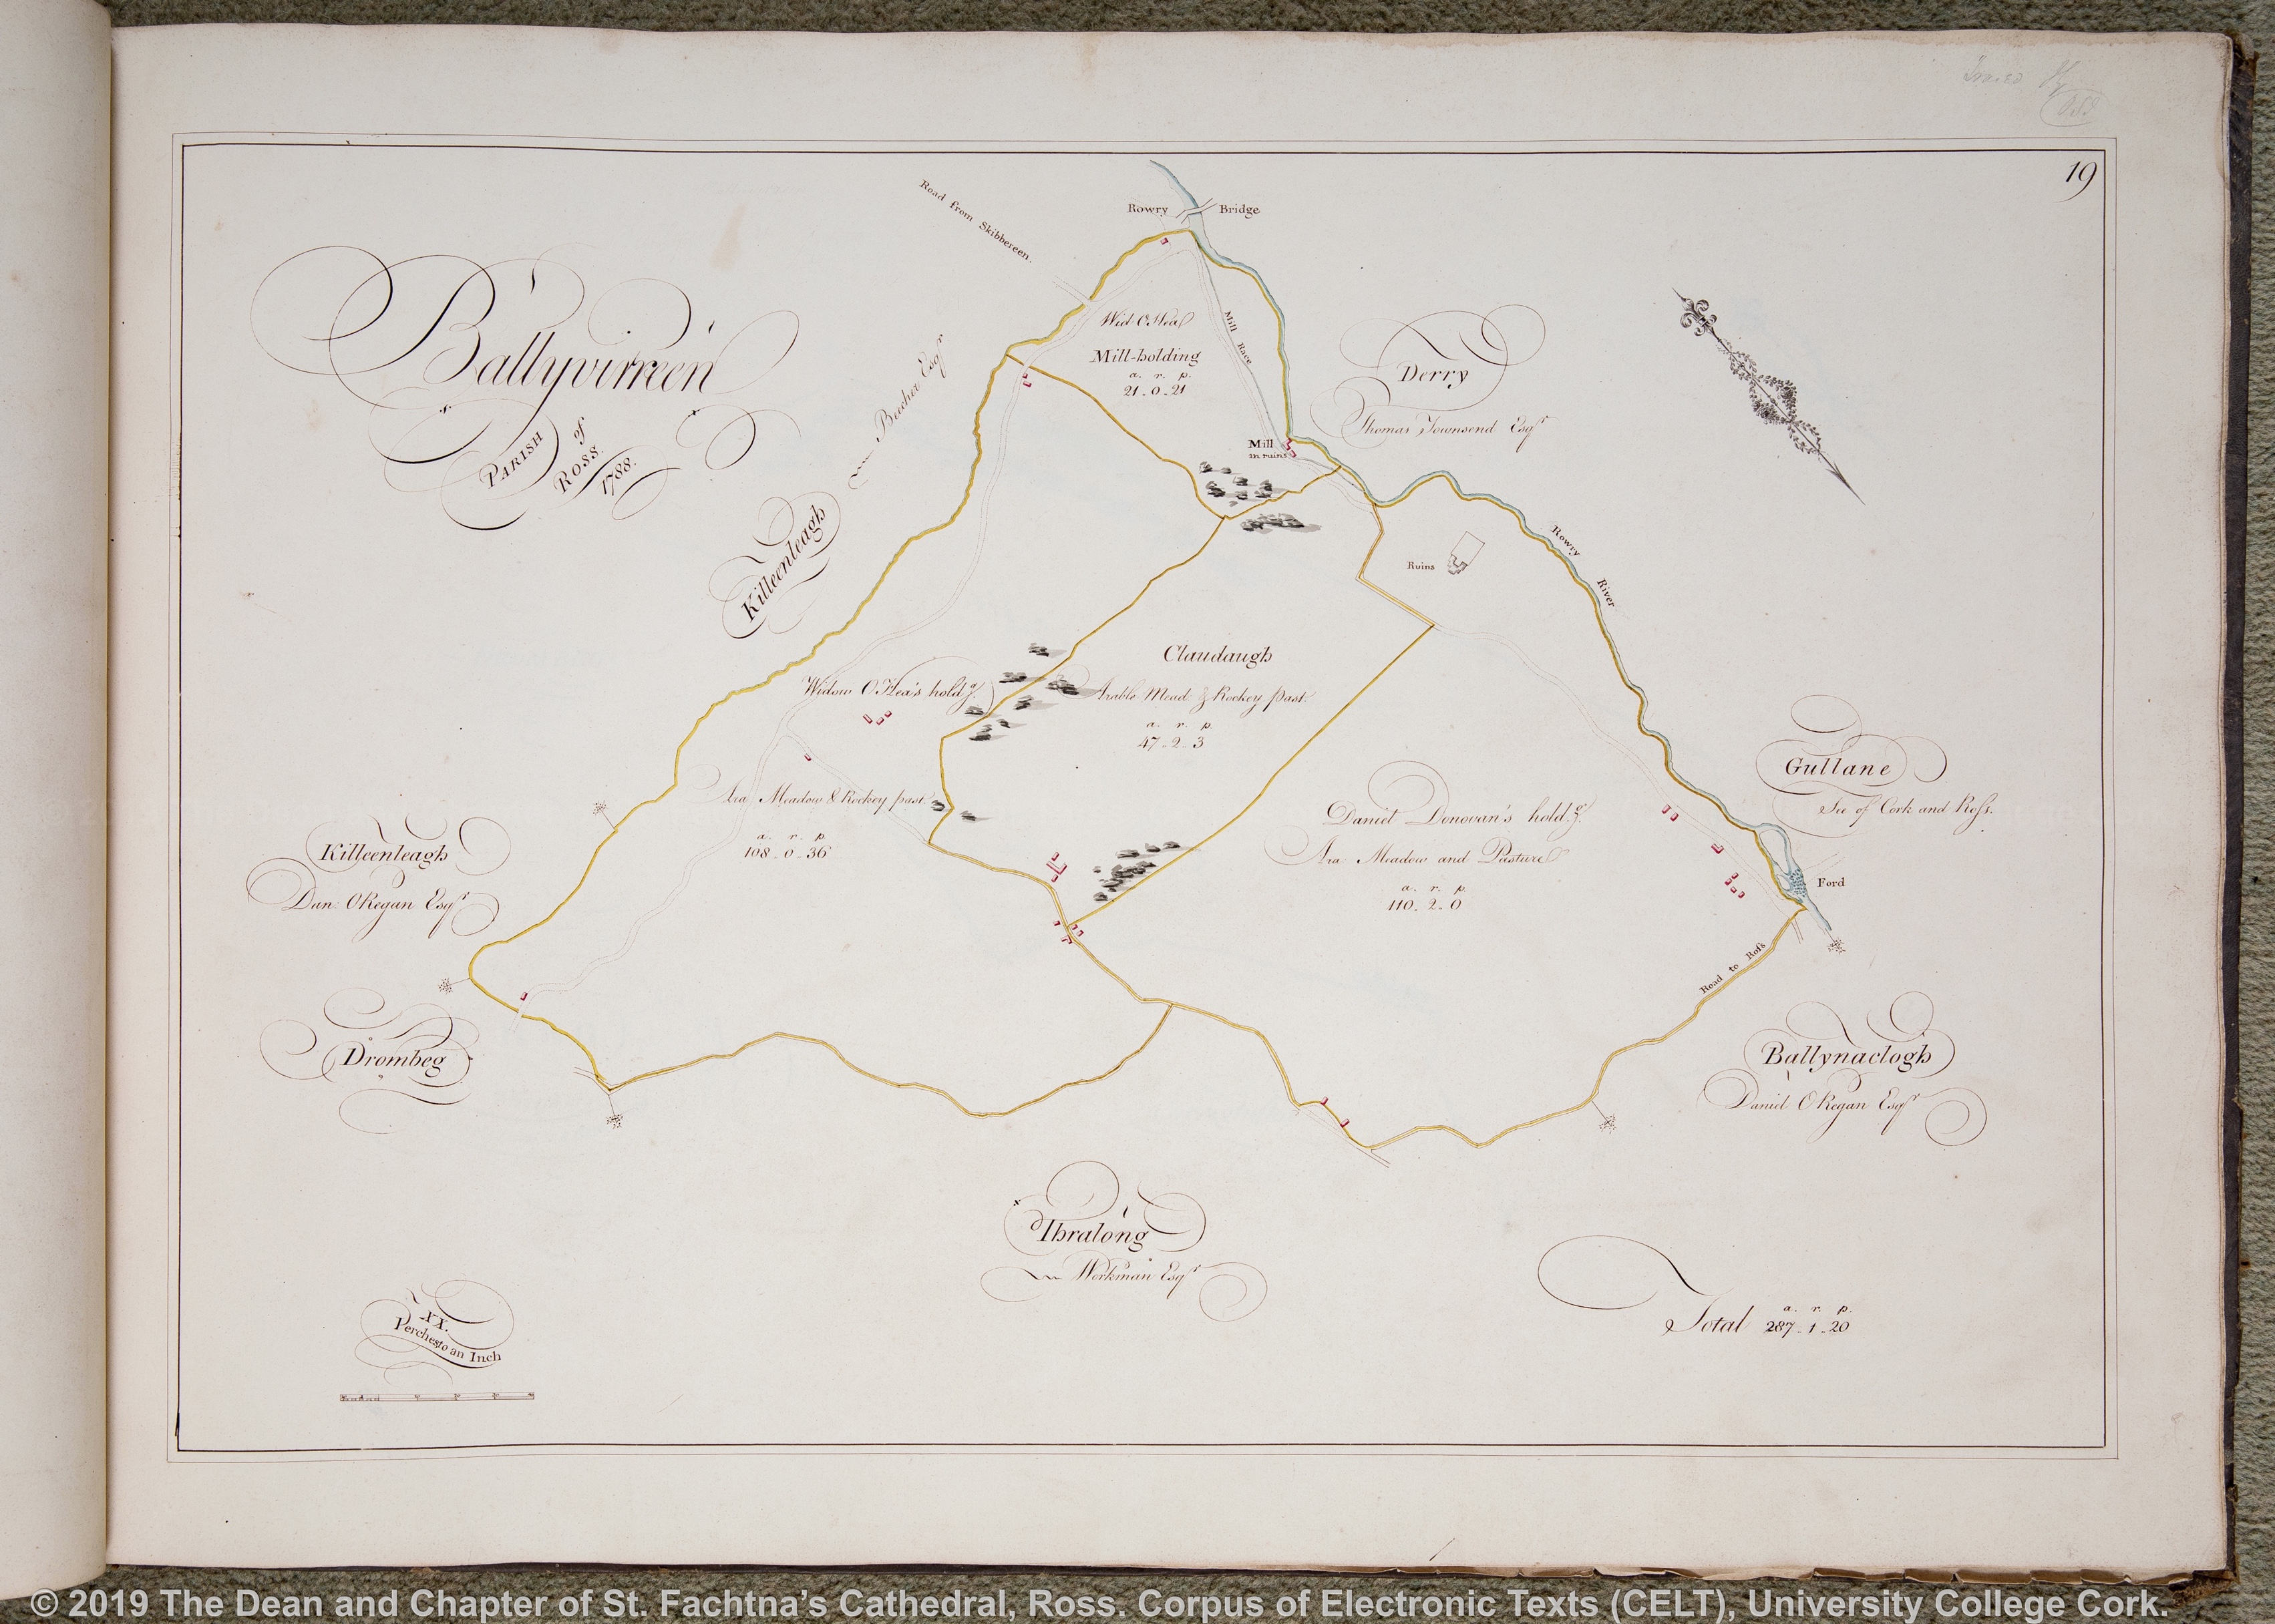 19
Ballyvirreen
PARISH
of
ROSS.
1788.
Road from Skibbereen.
Rowry Bridge
Wid. O.Hea
Mill-holding
a. r. p.
21_0_21
Mill Race
Mill
in ruins
Derry
Thomas Townsend Esqr
Becher Esqr
Killeenleagh
Ruins
Rowry River
Claudaugh
Arable Mead. & Rockey past.
a. r. p.
47_2_3
Widow O'Hea's holdg.
Ara. Meadow & Rockey past.
a. r. p
108_0_36
Gullane
See of Cork and Ross.
Daniel Donovan's holdg.
Ara: Meadow and Pasture
a. r. p.
110_2_0
Ford
Killeenleagh
Dan: O Regan Esqr
Road to Ross
Drombeg
Ballynaclogh
Daniel O Regan Esqr
Ibralong
Workman Esqr
XX.
Perches to an Inch
a. r. p.
Total 287_1_20
© 2019 The Dean and Chapter of St. Fachtna's Cathedral, Ross. Corpus of Electronic Texts (CELT), University College Cork.